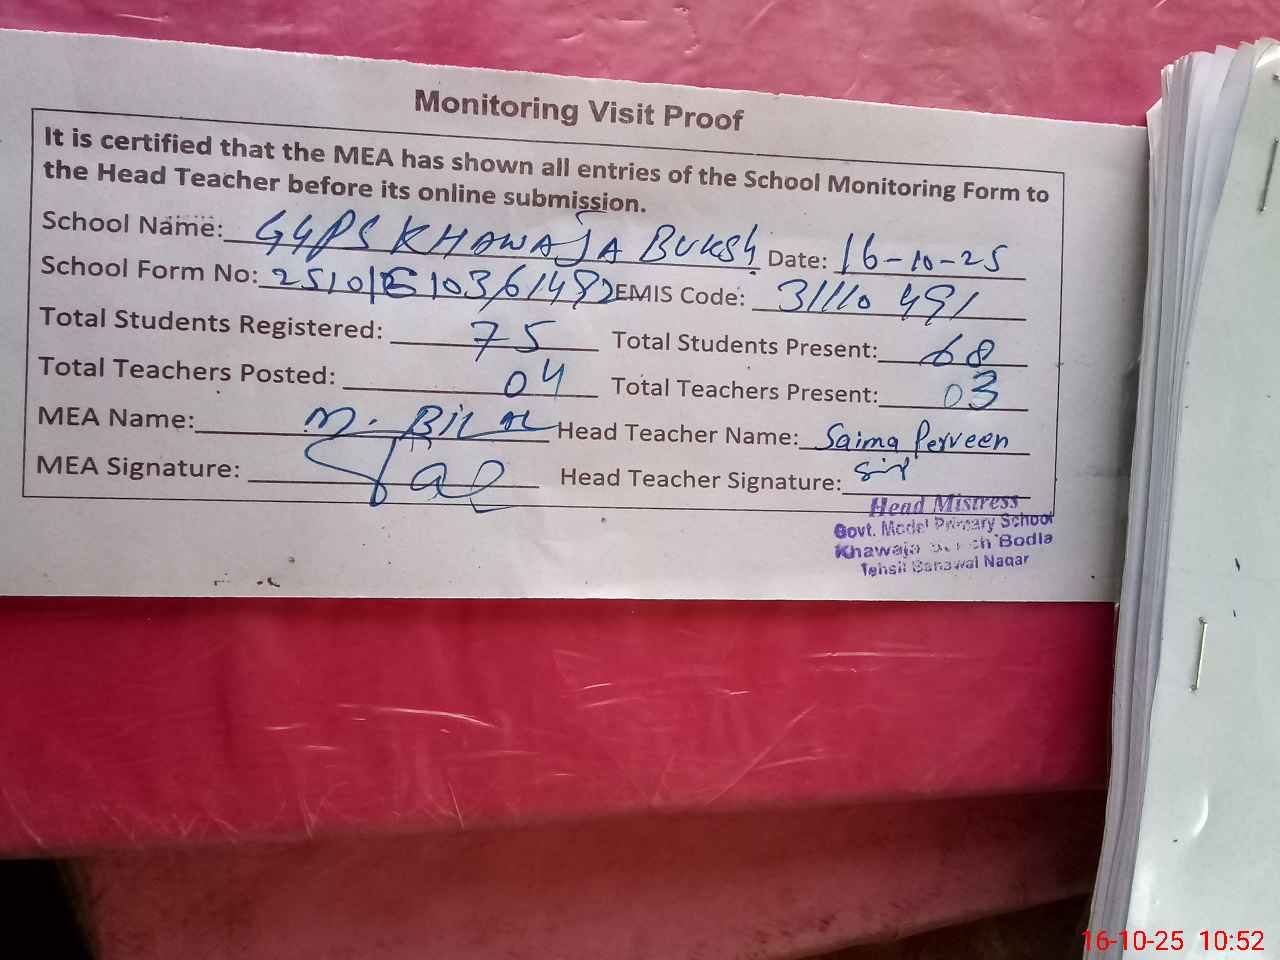 Monitoring Visit Proof
It is certified that the MEA has shown all entries of the School Monitoring Form to
the Head Teacher before its online submission.
School Name: GGPS KHAWAJA BUKSH Date: 16-10-25
School Form No: EMIS Code: 31110491
Total Students Registered: 75 Total Students Present: 68
Total Teachers Posted: 04 Total Teachers Present: 03
MEA Name: M. BILAL Head Teacher Name: Saima Perveen
MEA Signature: Head Teacher Signature:
Head Mistress
Govt. Model Primary School
Khawaja Bodla
Tehsil Nagar
16-10-25 10:52